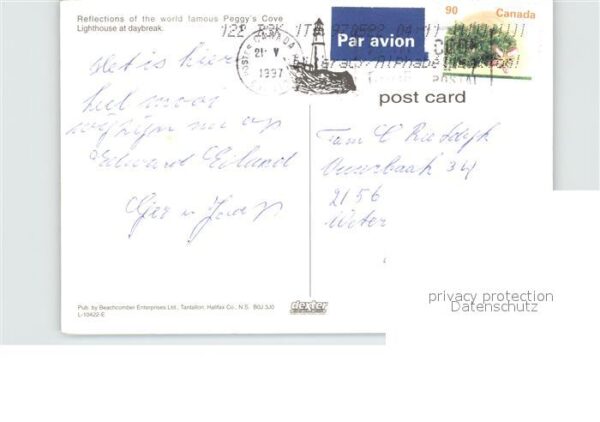 Reflections of the world famous Peggy's Cove
Lighthouse at daybreak.
90 Canada
Par avion
CANADA
21 V
1997
post card
Het is hier
heel mooi
wij zijn nu op
Edward Eiland
Ger n Jaap
Fam C Rietdijk
Vuurbaak 34
2156
Weter
Pub. by Beachcomber Enterprises Ltd., Tantallon, Halifax Co., N.S. B0J 3J0
L-10422-E
dexter
privacy protection
Datenschutz